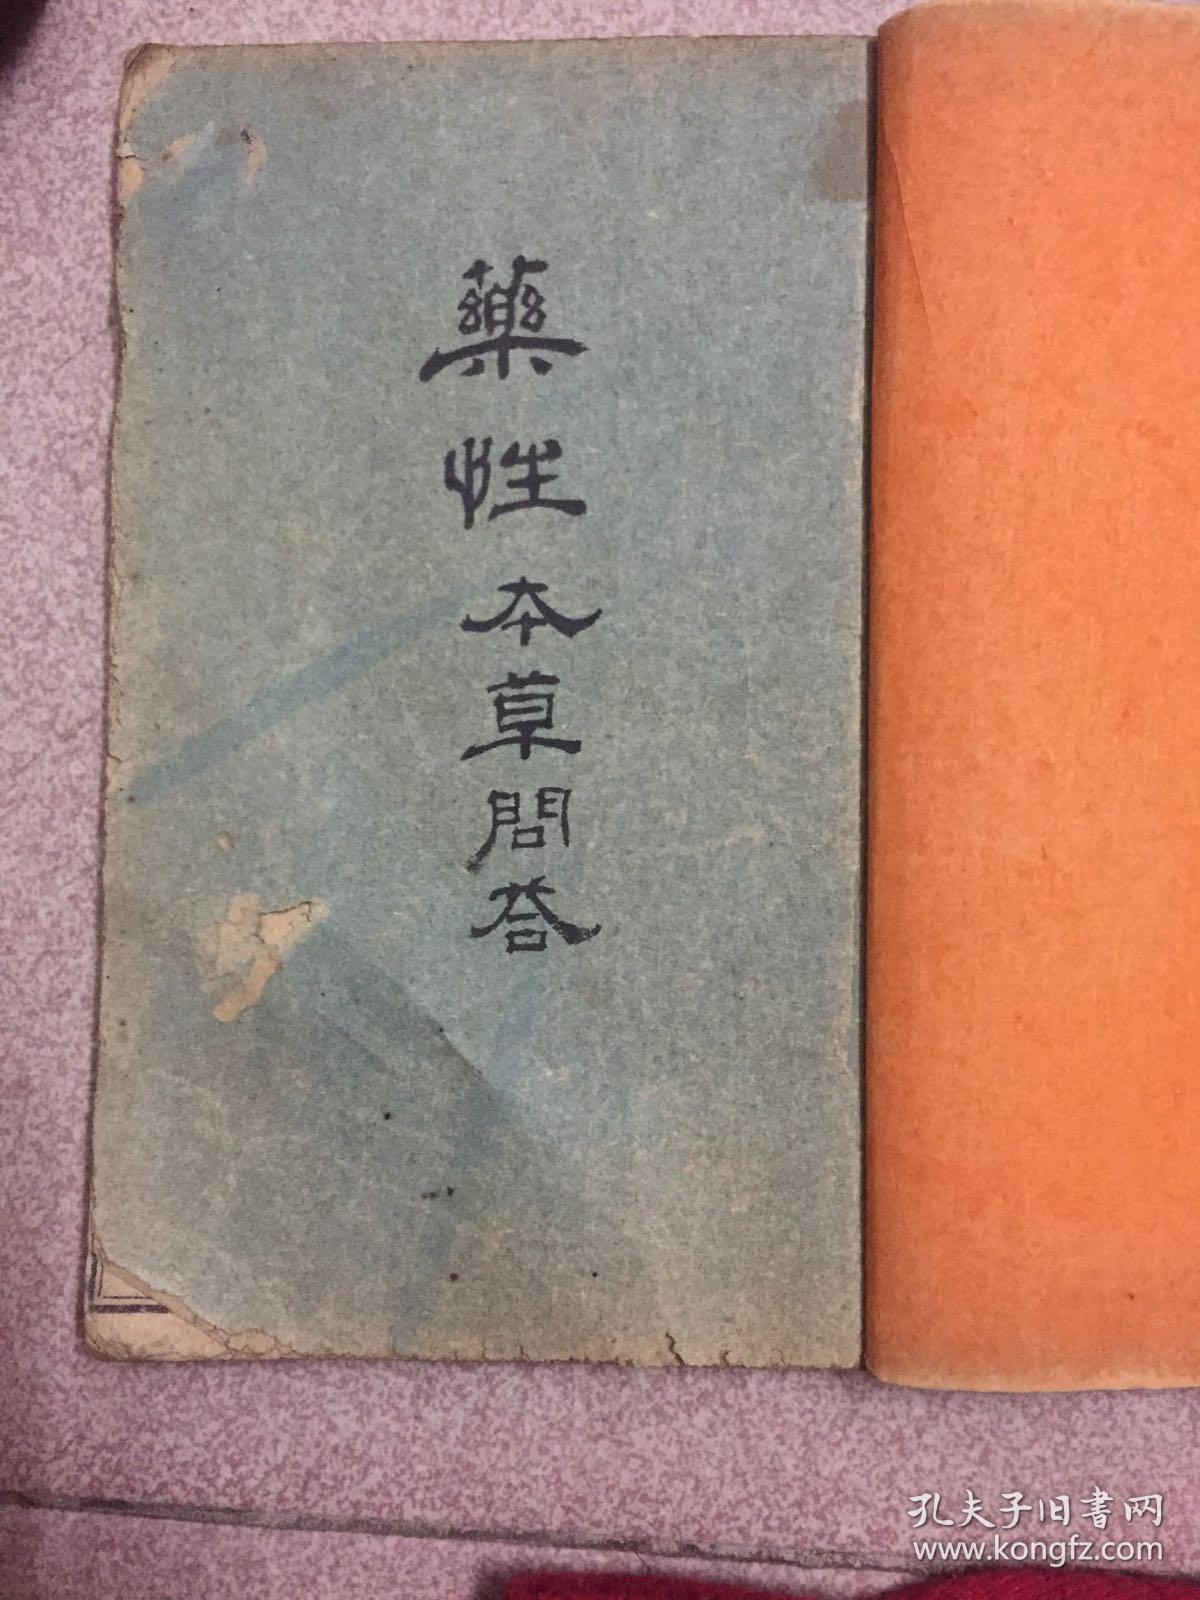 藥性本草問荅
孔夫子旧書网
www.kongfz.com